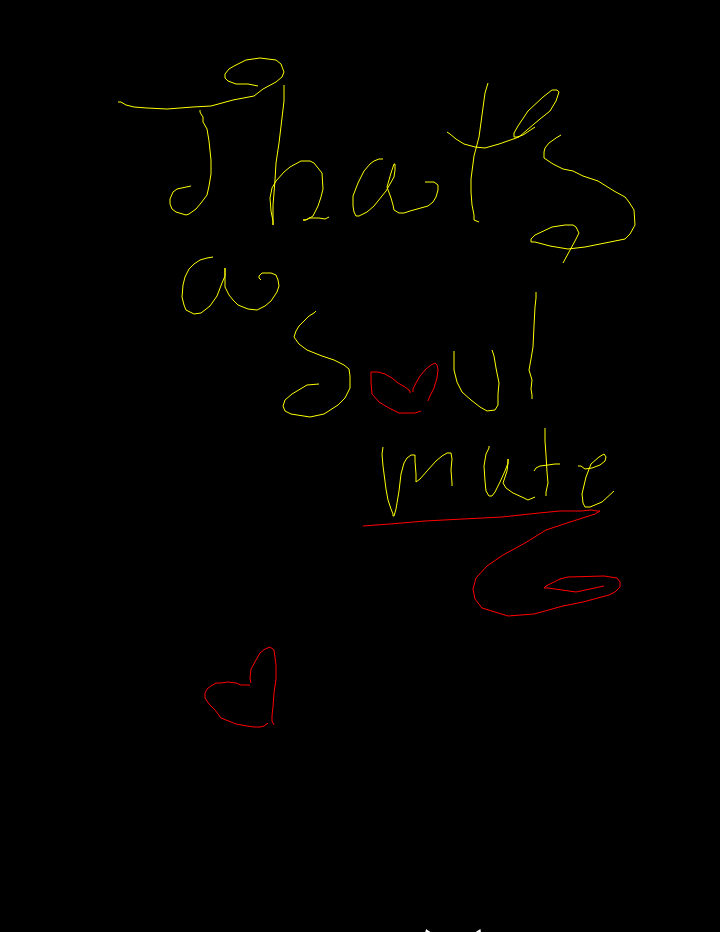 That's
a
soul
mate